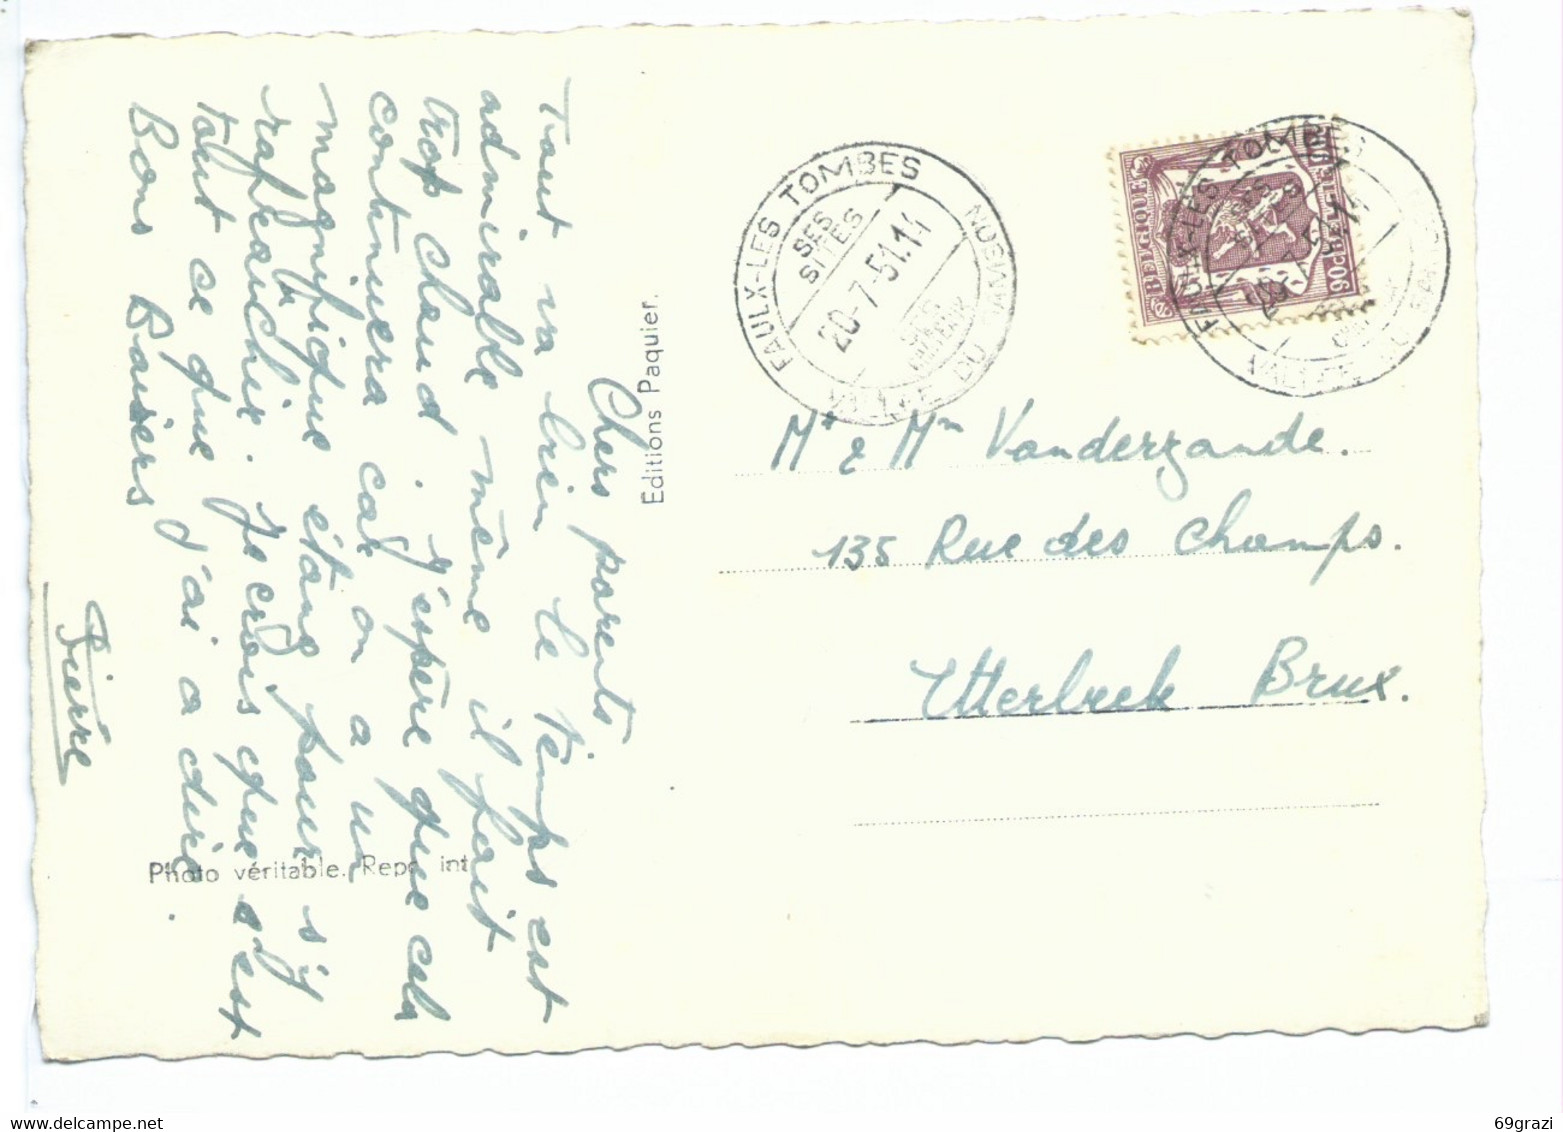 Chers parents
Tout va bien le temps est
admirable même il fait
trop chaud. J'espère que cela
continuera car on a un
magnifique étang pour s'y
rafraichir. Je crois que c'est
tout ce que j'ai a dire.
Bons Baisers
Pierre
Editions Paquier.
Photo véritable. Repr. int
FAULX-LES TOMBES
SES
SITES
20-7-51.14
SES
VALLEE DU SAMSON
BELGIQUE
90c BELGIE 90c
FAULX-LES TOMBES
SES
SITES
VALLEE DU SAMSON
Mr & Mm Vanderzande.
135 Rue des Champs.
Etterbeek Brux.
69grazi